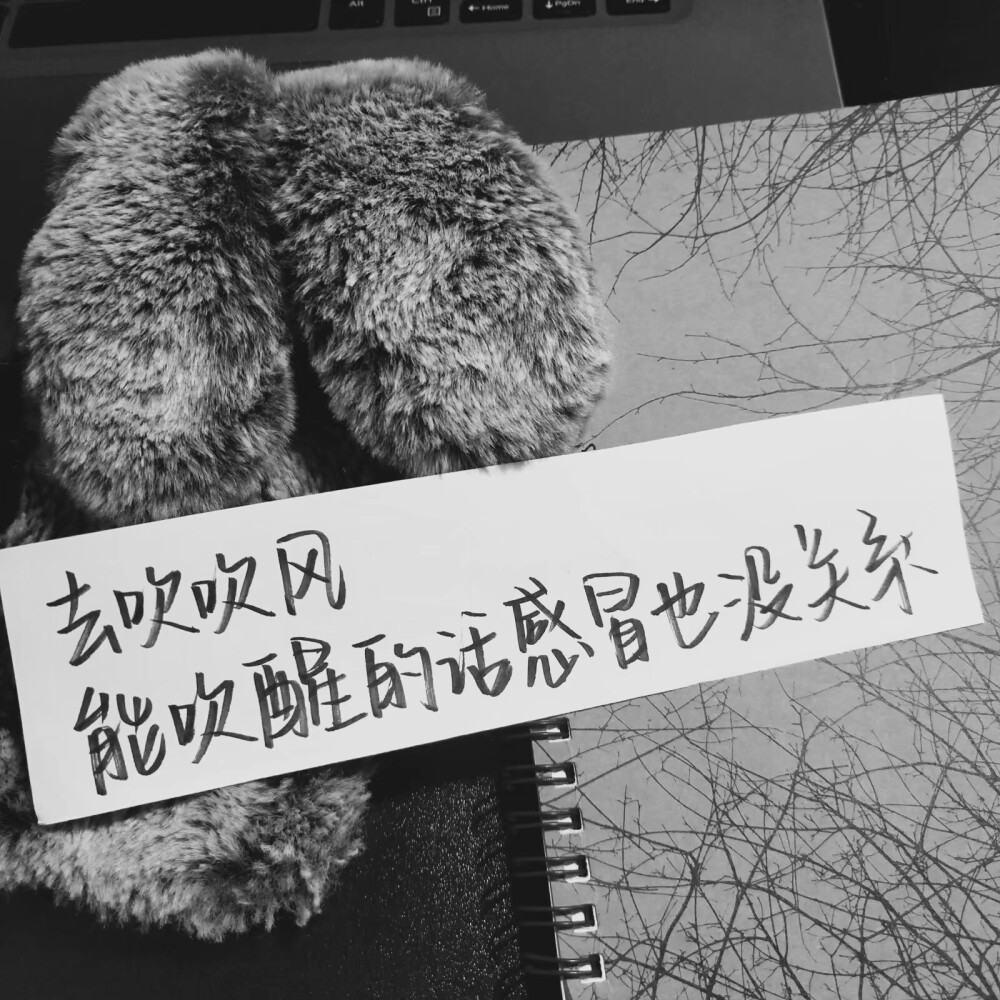 Alt
Ctrl
←Home
↓PgDn
去吹吹风
能吹醒的话感冒也没关系